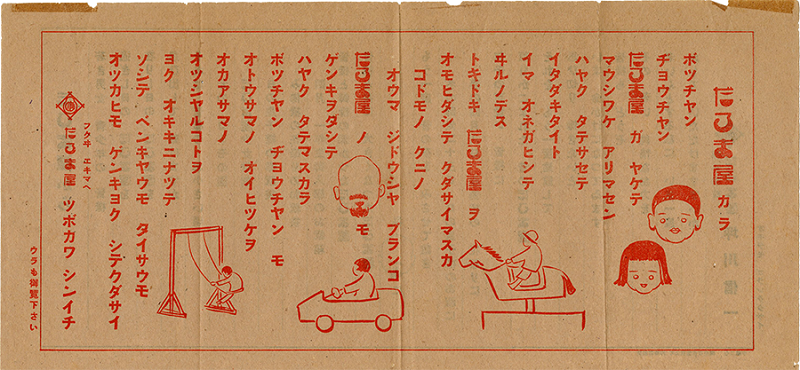 だるま屋 カラ
ボツチヤン
ヂヨウチヤン
だるま屋 ガ ヤケテ
マウシワケ アリマセン
ハヤク タテサセテ
イタダキタイト
イマ オネガヒシテ
ヰルノデス
トキドキ だるま屋 ヲ
オモヒダシテ クダサイマスカ
コドモノ クニノ
オウマ ジドウシヤ ブランコ
だるま屋 ノ モ
ゲンキヲダシテ
ハヤク タテマスカラ
ボツチヤン ヂヨウチヤン モ
オトウサマノ オイヒツケヲ
オカアサマノ
オツシヤルコトヲ
ヨク オキキニナツテ
ソシテ ベンキヤウモ タイサウモ
オツカヒモ ゲンキヨク シテクダサイ
フクヰ エキマヘ
だるま屋 ツボカワ シンイチ
ウラも御覧下さい